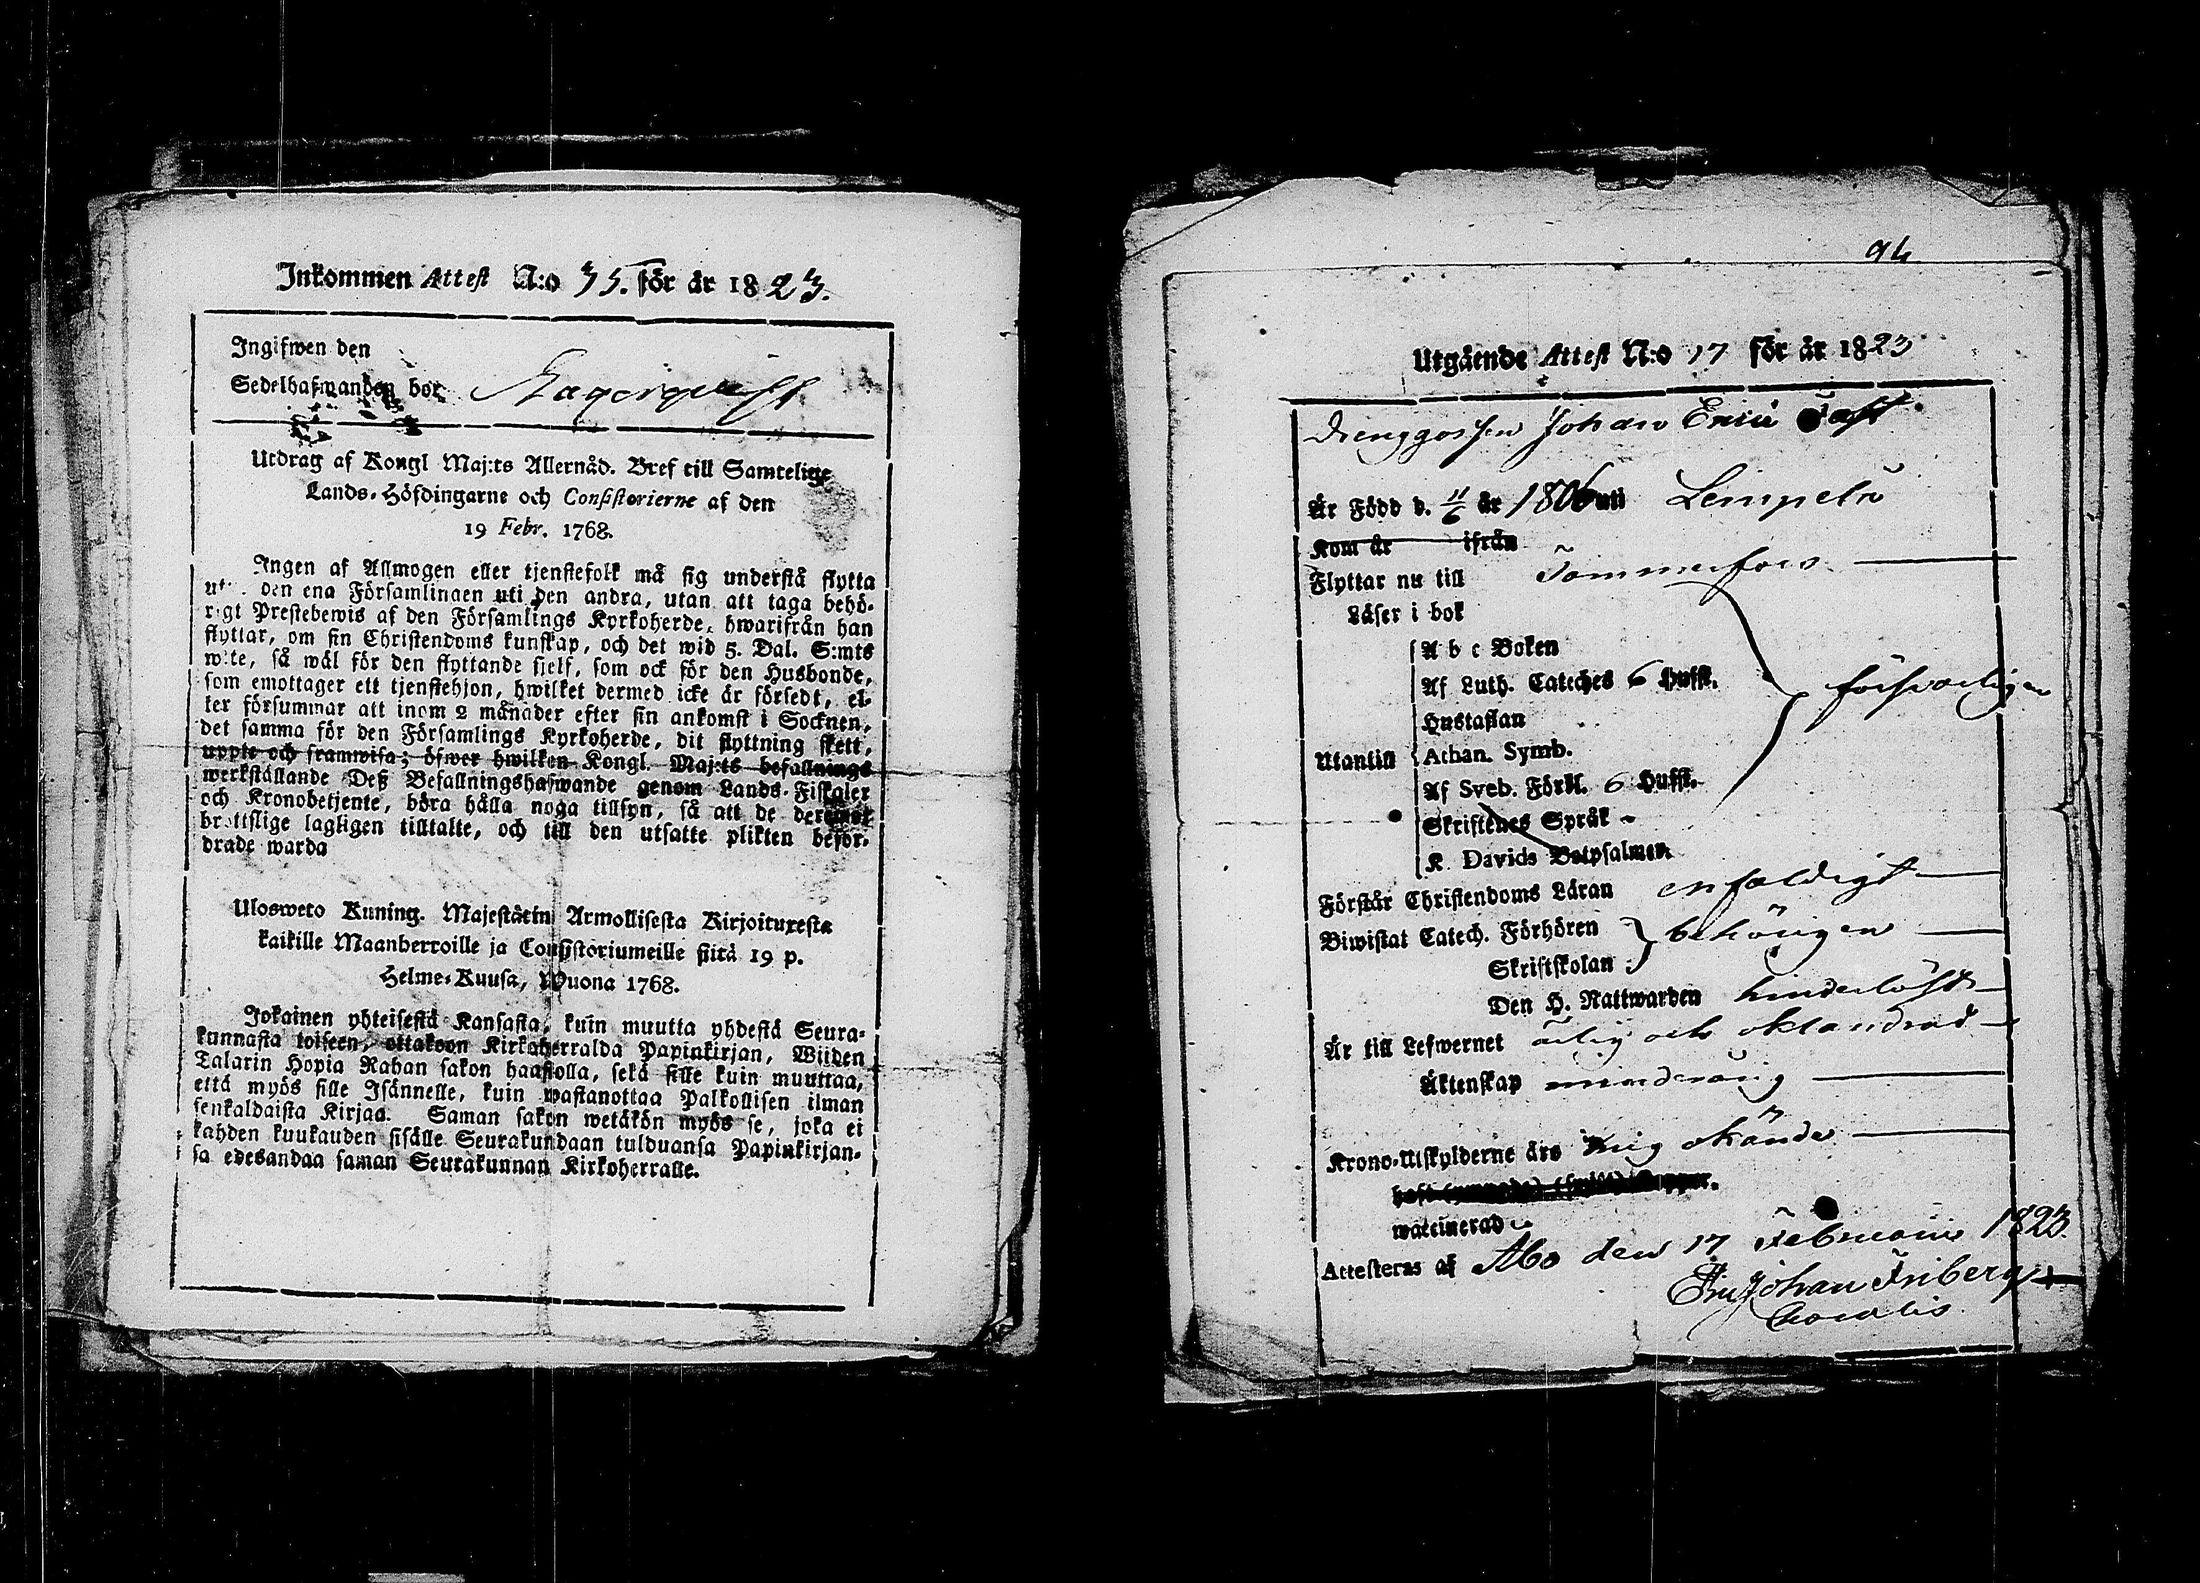 Inkommen Attest N:o 35. för år 1823.
Ingifwen den
Sedelhafwanden bor
Utdrag af Kongl Maj:ts Allernåd. Bref till Samtelige
Lands-Höfdingarne och Consistorierne af den
19 Febr. 1768.
Ingen af Allmogen eller tjenstefolk må sig understå flytta
den ena Församlingen uti den andra, utan att taga behö-
rigt Prestebewis af den Församlings Kyrkoherde, hwarifrån han
flyttar, om sin Christendoms kunskap, och det wid 5. Dal. S:mts
wite, så wäl för den flyttande sjelf, som ock för den Husbonde,
som emottager ett tjenstehjon, hwilket dermed icke är försedt, el-
ler försummar att inom 2 månader efter sin ankomst i Socknen,
det samma för den Församlings Kyrkoherde, dit flyttning skett,
uppte och framwisa; öfwer hwilken Kongl. Maj:ts befallnings
werkställande Deß Befallningshafwande genom Lands-Fiskaler
och Kronobetjente, böra hålla noga tillsyn, så att de deremot
brottslige lagligen tilltalte, och till den utsatte plikten beför-
drade warda
Ulosweto Kuning. Majestätin Armollisesta Kirjoituxesta
kaikille Maanherroille ja Consistoriumeille siitä 19 p.
Helme-Kuusa, Wuona 1768.
Jokainen yhteisestä Kansasta, kuin muutta yhdestä Seura-
kunnasta toiseen, ottakoon Kirkoherralda Papinkirjan, Wiiden
Talarin Hopia Rahan sakon haastolla, sekä sille kuin muuttaa,
että myös sille Isännelle, kuin wastanottaa Palkollisen ilman
senkaldaista Kirjaa. Saman sakon wetäkön myös se, joka ei
kahden kuukauden sisälle Seurakundaan tulduansa Papinkirjan-
sa edesandaa saman Seurakunnan Kirkoherralle.
94
Utgående Attest N:o 17 för år 1823
Drenggossen Johan Eric Fast
Är Född d. 11/6 år 1806 uti Lempelä
Kom år ifrån
Flyttar nu till Tammerfors
Läser i bok
A b c Boken
Af Luth. Cateches 6 Hufst.
försvarligen
Hustaflan
Utantill Athan. Symb.
Af Sveb. Förkl. 6 Hufst.
Skriftenes Språk
K. Davids Botpsalmer
Förstår Christendoms Läran enfaldigt
Biwistat Catech. Förhören behörigen
Skriftskolan
Den H. Nattwarden hinderlöst
Är till Lefwernet ärlig och oklandrad
Äktenskap minderårig
Krono-Utskylderne äro mig okände
waccinerad
Attesteras af Åbo den 17 Februarii 1823.
Johan Friberg